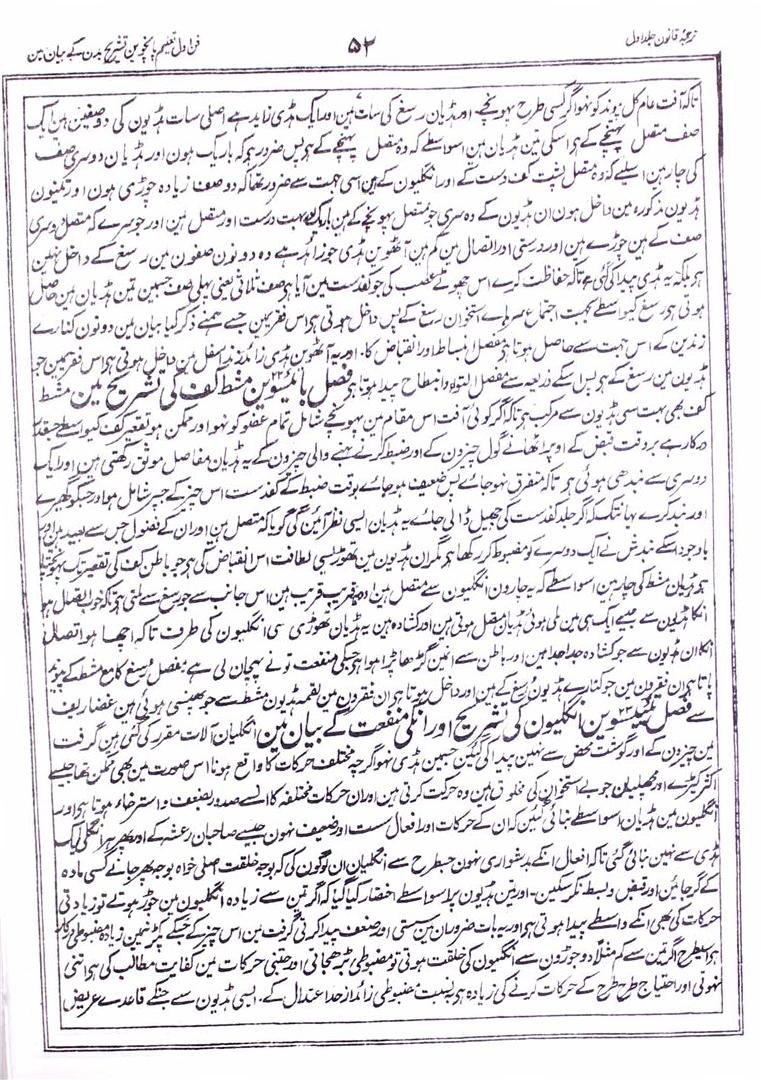 ترجمۂ قانون جلد اول ۵۲ فن اول تعلیم پانچوین تشریح بدن کے بیان مین
تاکہ آفت عام کل پیوند کو نہو اگر کسی طرح پہونچے۔ اور ہڈیان رسغ کی سات ہین اور ایک ہڈی زاید ہے اصلی سات ہڈیون کی دو صفین ہین ایک
صف متصل پہنچے کے ہر اسکی تین ہڈیان ہین اسواسطے کہ وہ متصل پہنچے کے ہر پس ضرور ہر کہ باریک ہون اور ہڈیان دوسری صف
کی چار ہین اسلیے کہ وہ متصل پشت کف دست کے اور انگلیون کے ہین اسی جہت سے ضرور تھا کہ دو صف زیادہ چوڑی ہون اور تینون
ہڈیون مذکورہ مین داخل ہون ان ہڈیون کے وہ سری جو متصل پہونچے کے ہین باریک اور بہت درست اور متصل ہین اور جو سرے کہ متصل دوسری
صف کے ہین چوڑے ہین اور درستی اور اتصال مین کم ہین آٹھوین ہڈی جو زائد ہے وہ دونون صفون مین رسغ کے داخل نہین
ہر بلکہ یہ ہڈی پیدا کی گئی ہے تاکہ حفاظت کرے اس چھوٹے عصب کی جو کفدست مین آیا ہر صف ثلاثی یعنی پہلی صف جسمین تین ہڈیان ہین حاصل
ہوتی ہر رسغ کیواسطے بجہت اجتماع سر ہاے استخوان رسغ کے پس داخل ہوتی ہر اس نقرہ مین جسے ہمنے ذکر کیا بیان مین دونون کنارے
زندین کے اس جہت سے حاصل ہوتا ہر مفصل انبساط اور انقباض کا۔ اور یہ آٹھوین ہڈی زائد زند اسفل مین داخل ہوتی ہر اس نقرہ مین جو
ہڈیون مین رسغ کے ہر پس اسکے ذریعہ سے مفصل التواء و انبطاح پیدا ہوتا ہر فصل بائیسوین مشط کف کی تشریح مین مشط
کف بھی بہت سی ہڈیون سے مرکب ہر تاکہ اگر کوئی آفت اس مقام مین پہونچے شامل تمام عضو کو نہو اور ممکن ہو تقعیر کف کیواسطے جسقدر
درکار ہے بر وقت قبض کے اوپر اٹھانے گول چیزون کے اور ضبط کرنے بہنے والی چیزون کے یہ ہڈیان مفاصل موثق رکھتی ہین اور ایک
دوسری سے بندھی ہوئی ہر تاکہ متفرق نہو جائے پس ضعیف ہو جائے بوقت ضبط کے کفدست اس چیز کے جسپر شامل ہو اور جسکو گھیرے
اور بند کرے یہانتک کہ اگر جلد کفدست کی چھیل ڈالی جاے یہ ہڈیان ایسی نظر آئین گی گویا کہ متصل ہین اور ان کے فضول حس سے بعید ہین اور
باوجود اسکے بندش نے ایک دوسرے کو مضبوط کر رکھا ہر مگر ان ہڈیون مین تھوڑیسی لطافت اس انقباض کی ہر جو باطن کف کی تقعیر تک پہونچتا
ہر ہڈیان مشط کی چار ہین اسواسطے کہ یہ چارون انگلیون سے متصل ہین اور قریب قریب ہین اس جانب سے جو رسغ سے ملتی ہر تاکہ خوب اتصال ہو
انکا ہڈیون سے جیسے ایک ہی مین ملی ہوئی ہڈیان متصل ہوتی ہین اور کشادہ ہین یہ ہڈیان تھوڑی سی انگلیون کی طرف تاکہ اچھا ہو اتصال
انکا ان ہڈیون سے جو کشادہ جدا جدا ہین اور باطن سے ائین گڑھا پڑا ہوا ہر جسکی منفعت تونے پہچان لی ہے مفصل رسغ کا مع مشط کے پیوند
پاتا ہر ان نقرون مین جو کنارے ہڈیون رسغ کے ہین اور داخل ہوتا ہر ان نقرون مین لقمہ ہڈیون مشط سے جو چھپی ہوئی ہین غضاریف
سے فصل تیئیسوین انگلیون کی تشریح اور انکی منفعت کے بیان مین انگلیان آلات مقرر کی گئی ہین گرفت
مین چیزون کے اور گوشت محض سے نہین پیدا کی گئین جسمین ہڈی نہو اگرچہ مختلف حرکات کا واقع ہونا اس صورت مین بھی ممکن تھا جیسے
اکثر کیڑے اور مچھلیان جو بے استخوان کی مخلوق ہین وہ حرکت کرتی ہین اور ان حرکات مختلفہ کا ایسے صدور بضعف و استرخاء ہوتا ہر اور
انگلیون مین ہڈیان اسواسطے بنائی گئین کہ ان کے حرکات اور افعال سست اور ضعیف نہون جیسے صاحبان رعشہ کے اور پھر ہر انگلی ایک
ہڈی سے نہین بنائی گئی تاکہ افعال انکے بدشواری نہون جسطرح سے انگلیان ان لوگون کی کہ بوجہ خلقت اصلی خواہ بوجہ بھر جانے کسی مادہ
کے گر جائین اور قبض و بسط نکر سکین۔ اور تین ہڈیون پر اسواسطے اختصار کیا گیا کہ اگر تین سے زیادہ انگلیون مین جوڑ ہوتے تو زیادتی
حرکات کی بھی انکے واسطے پیدا ہوتی ہر اور یہ بات ضرور ان مین سستی اور ضعف پیدا کرتی گرفت مین اس چیز کے جسکے پکڑنیمین زیادہ مضبوطی درکار
ہر اسیطرح اگر تین سے کم مثلاً دو جوڑون سے انگلیون کی خلقت ہوتی تو مضبوطی بڑھ جاتی اور جتنی حرکات مین کفایت مطالب کی ہر اتنی
نہوتی اور احتیاج طرح طرح کے حرکات کرنے کی زیادہ ہر بہ نسبت مضبوطی زائد از حد اعتدال کے۔ ایسی ہڈیون سے جنکے قاعدے عریض